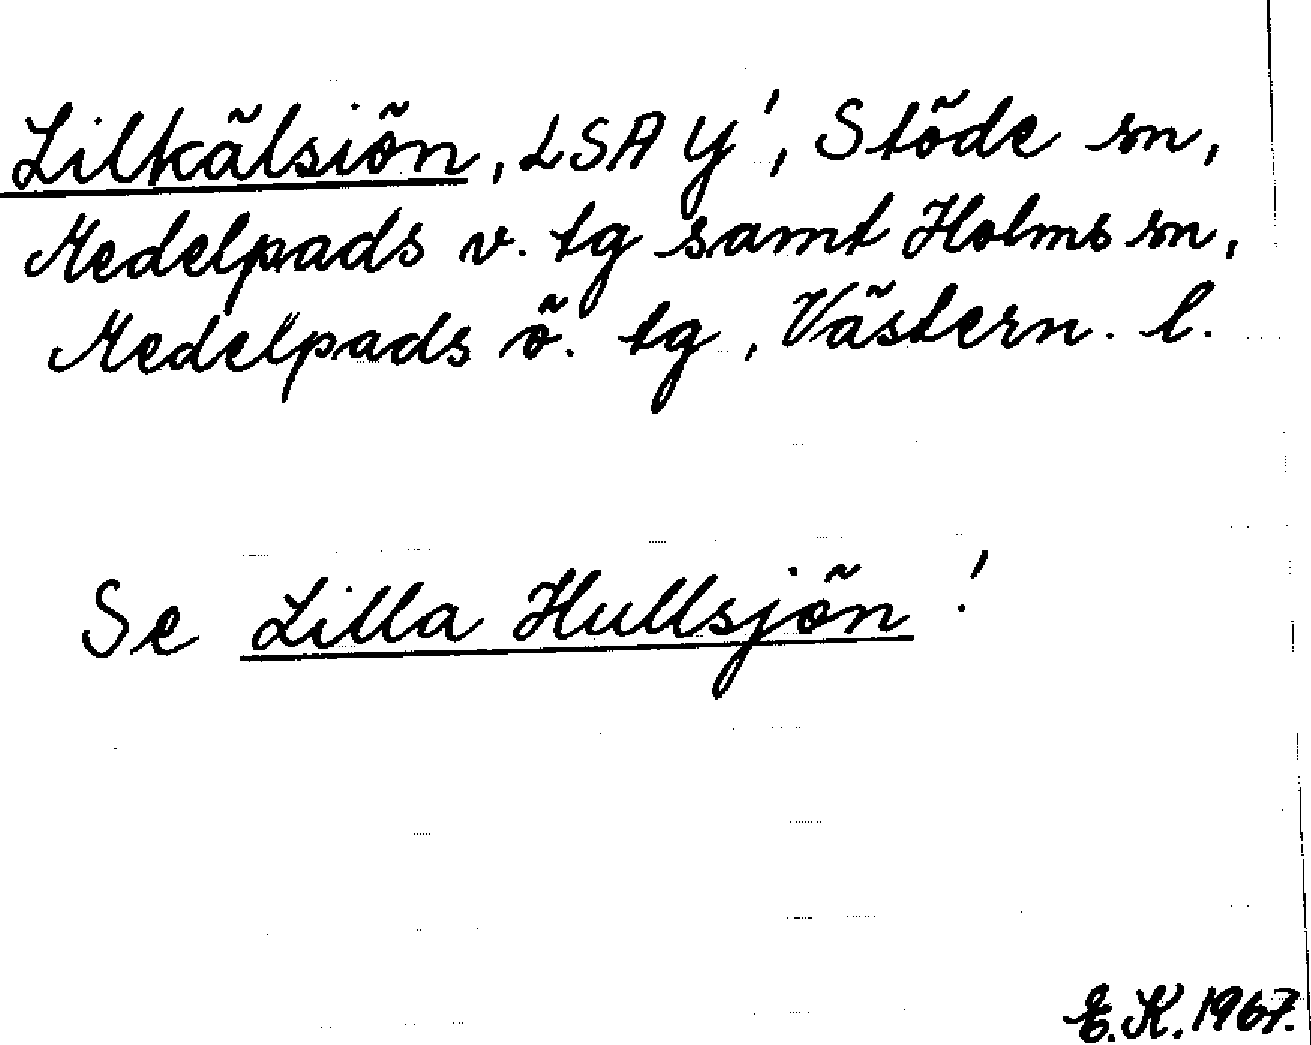 Lillkälsiön, LSA Y', Stöde sn,
Medelpads v. tg samt Holms sn,
Medelpads ö. tg, Västern. l.
Se Lilla Hullsjön!
E.K. 1967.